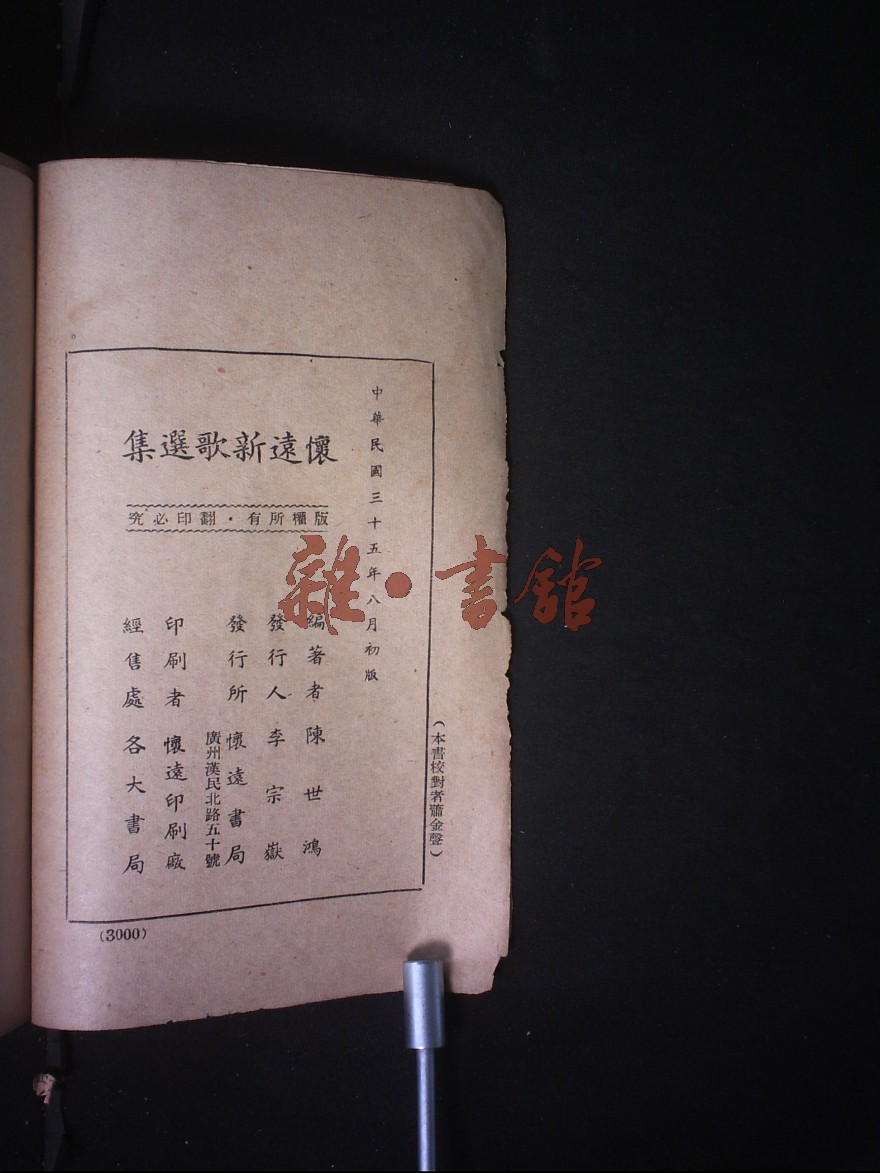 中華民國三十五年八月初版
懷遠新歌選集
版權所有·翻印必究
編著者 陳世鴻
發行人 李宗嶽
發行所 懷遠書局
廣州漢民北路五十號
印刷者 懷遠印刷廠
經售處 各大書局
(本書校對者蕭金聲)
(3000)
雜·書館